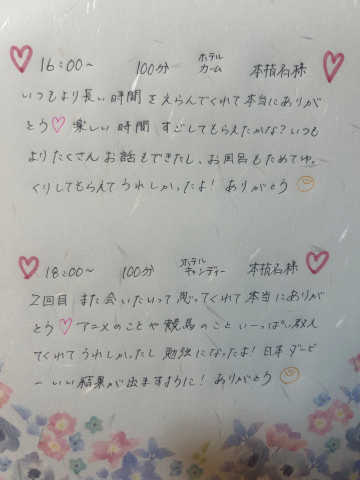 16:00〜 100分 ホテル カーム 本指名様
いつもより長い時間をえらんでくれて本当にありが
とう♡ 楽しい時間 すごしてもらえたかな?いつも
よりたくさんお話もできたし、お風呂もためてゆっ
くりしてもらえてうれしかったよ! ありがとう☺
18:00〜 100分 ホテル キャンディー 本指名様
2回目 また会いたいって思ってくれて本当にありが
とう♡ アニメのことや競馬のこといーっぱい教え
てくれてうれしかったし 勉強になったよ!日本ダービ
ーいい結果が出ますように! ありがとう☺